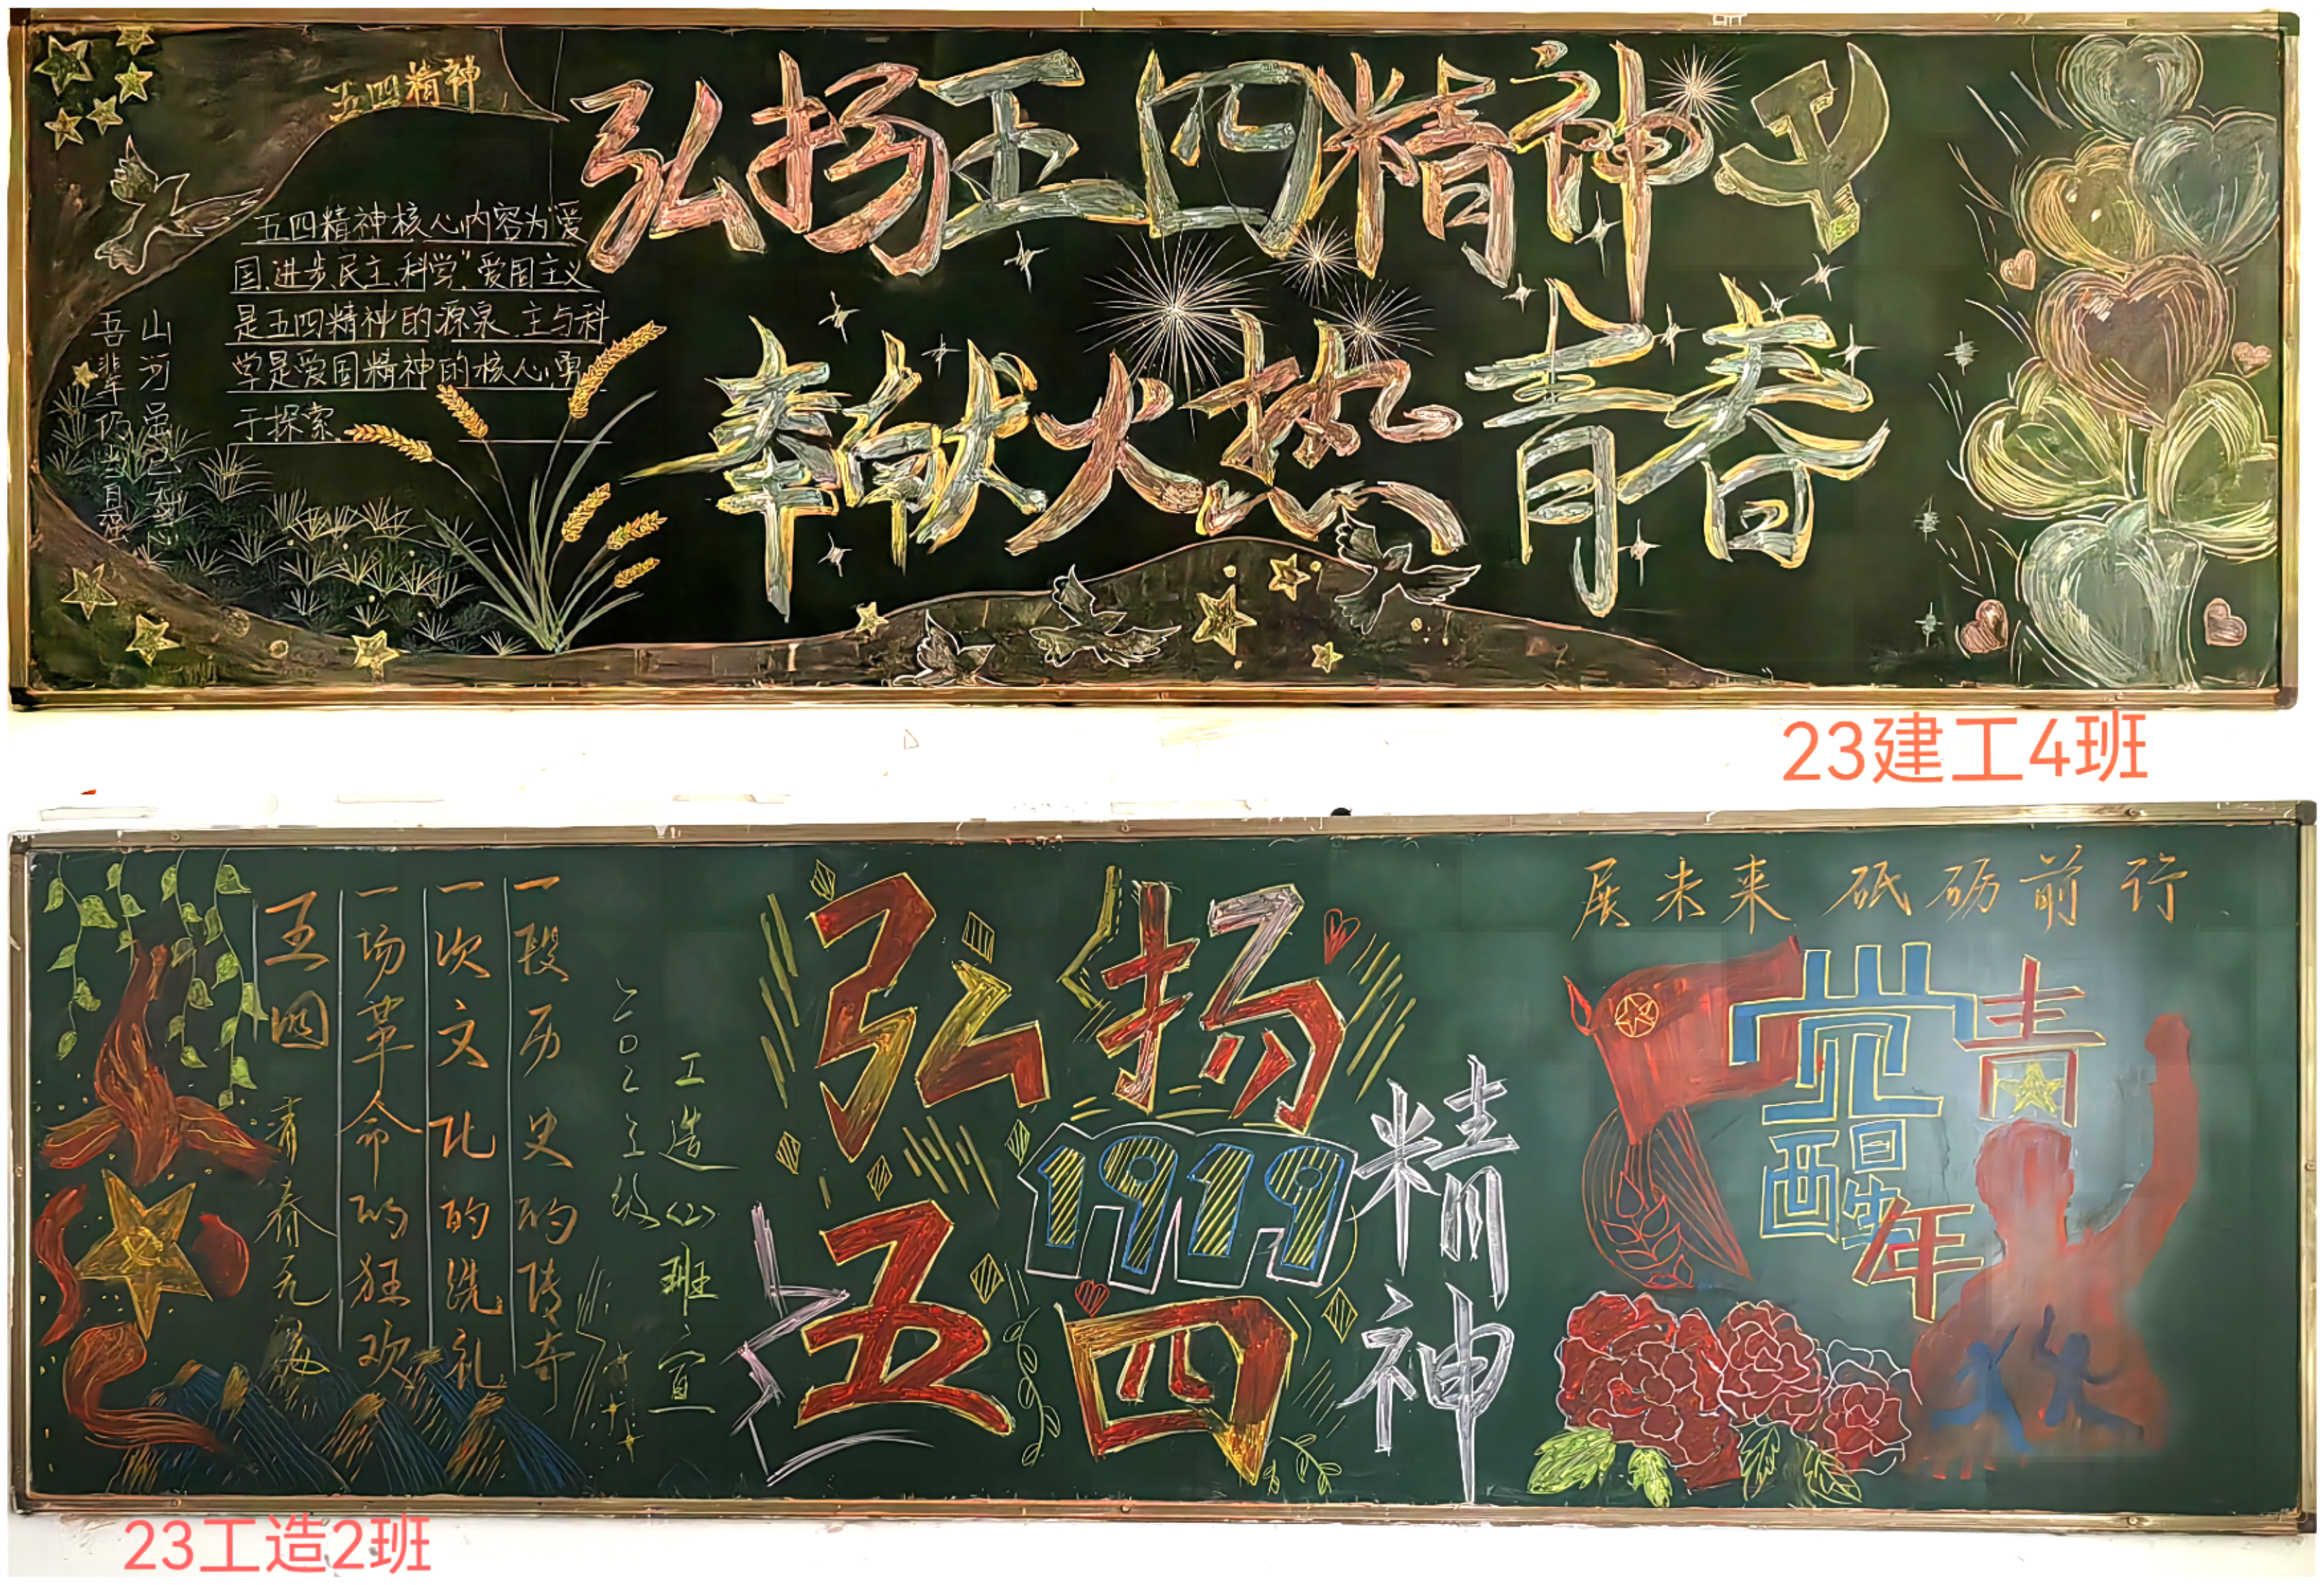 五四精神
弘扬五四精神
奉献火热青春
五四精神核心内容为"爱
国、进步、民主、科学",爱国主义
是五四精神的源泉、主与科
学是爱国精神的核心,勇
于探索
山河虽已
吾辈仍
23建工4班
展未来 砥砺前行
弘扬
1919
五四
精神
觉醒年
青
一段历史的传奇
一次文化的洗礼
一场革命的狂欢
五四
青春无悔
二〇二三级
工造(二)班宣
23工造2班